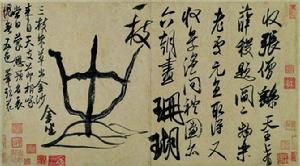 收張僧繇天王上
薛稷題閻二物樂
老處元直取得又
收景溫問禮圖亦
六朝畫珊瑚
一枝
金坐
三枝朱草出金沙
來自天支節相家
當日蒙恩預名表
愧無五色筆頭花